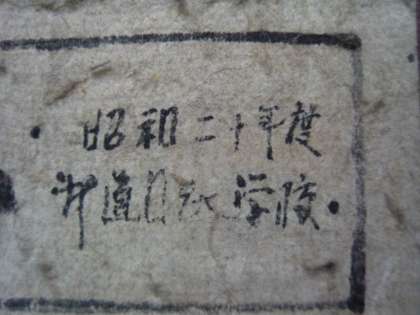 昭和二十年度
道国民学校